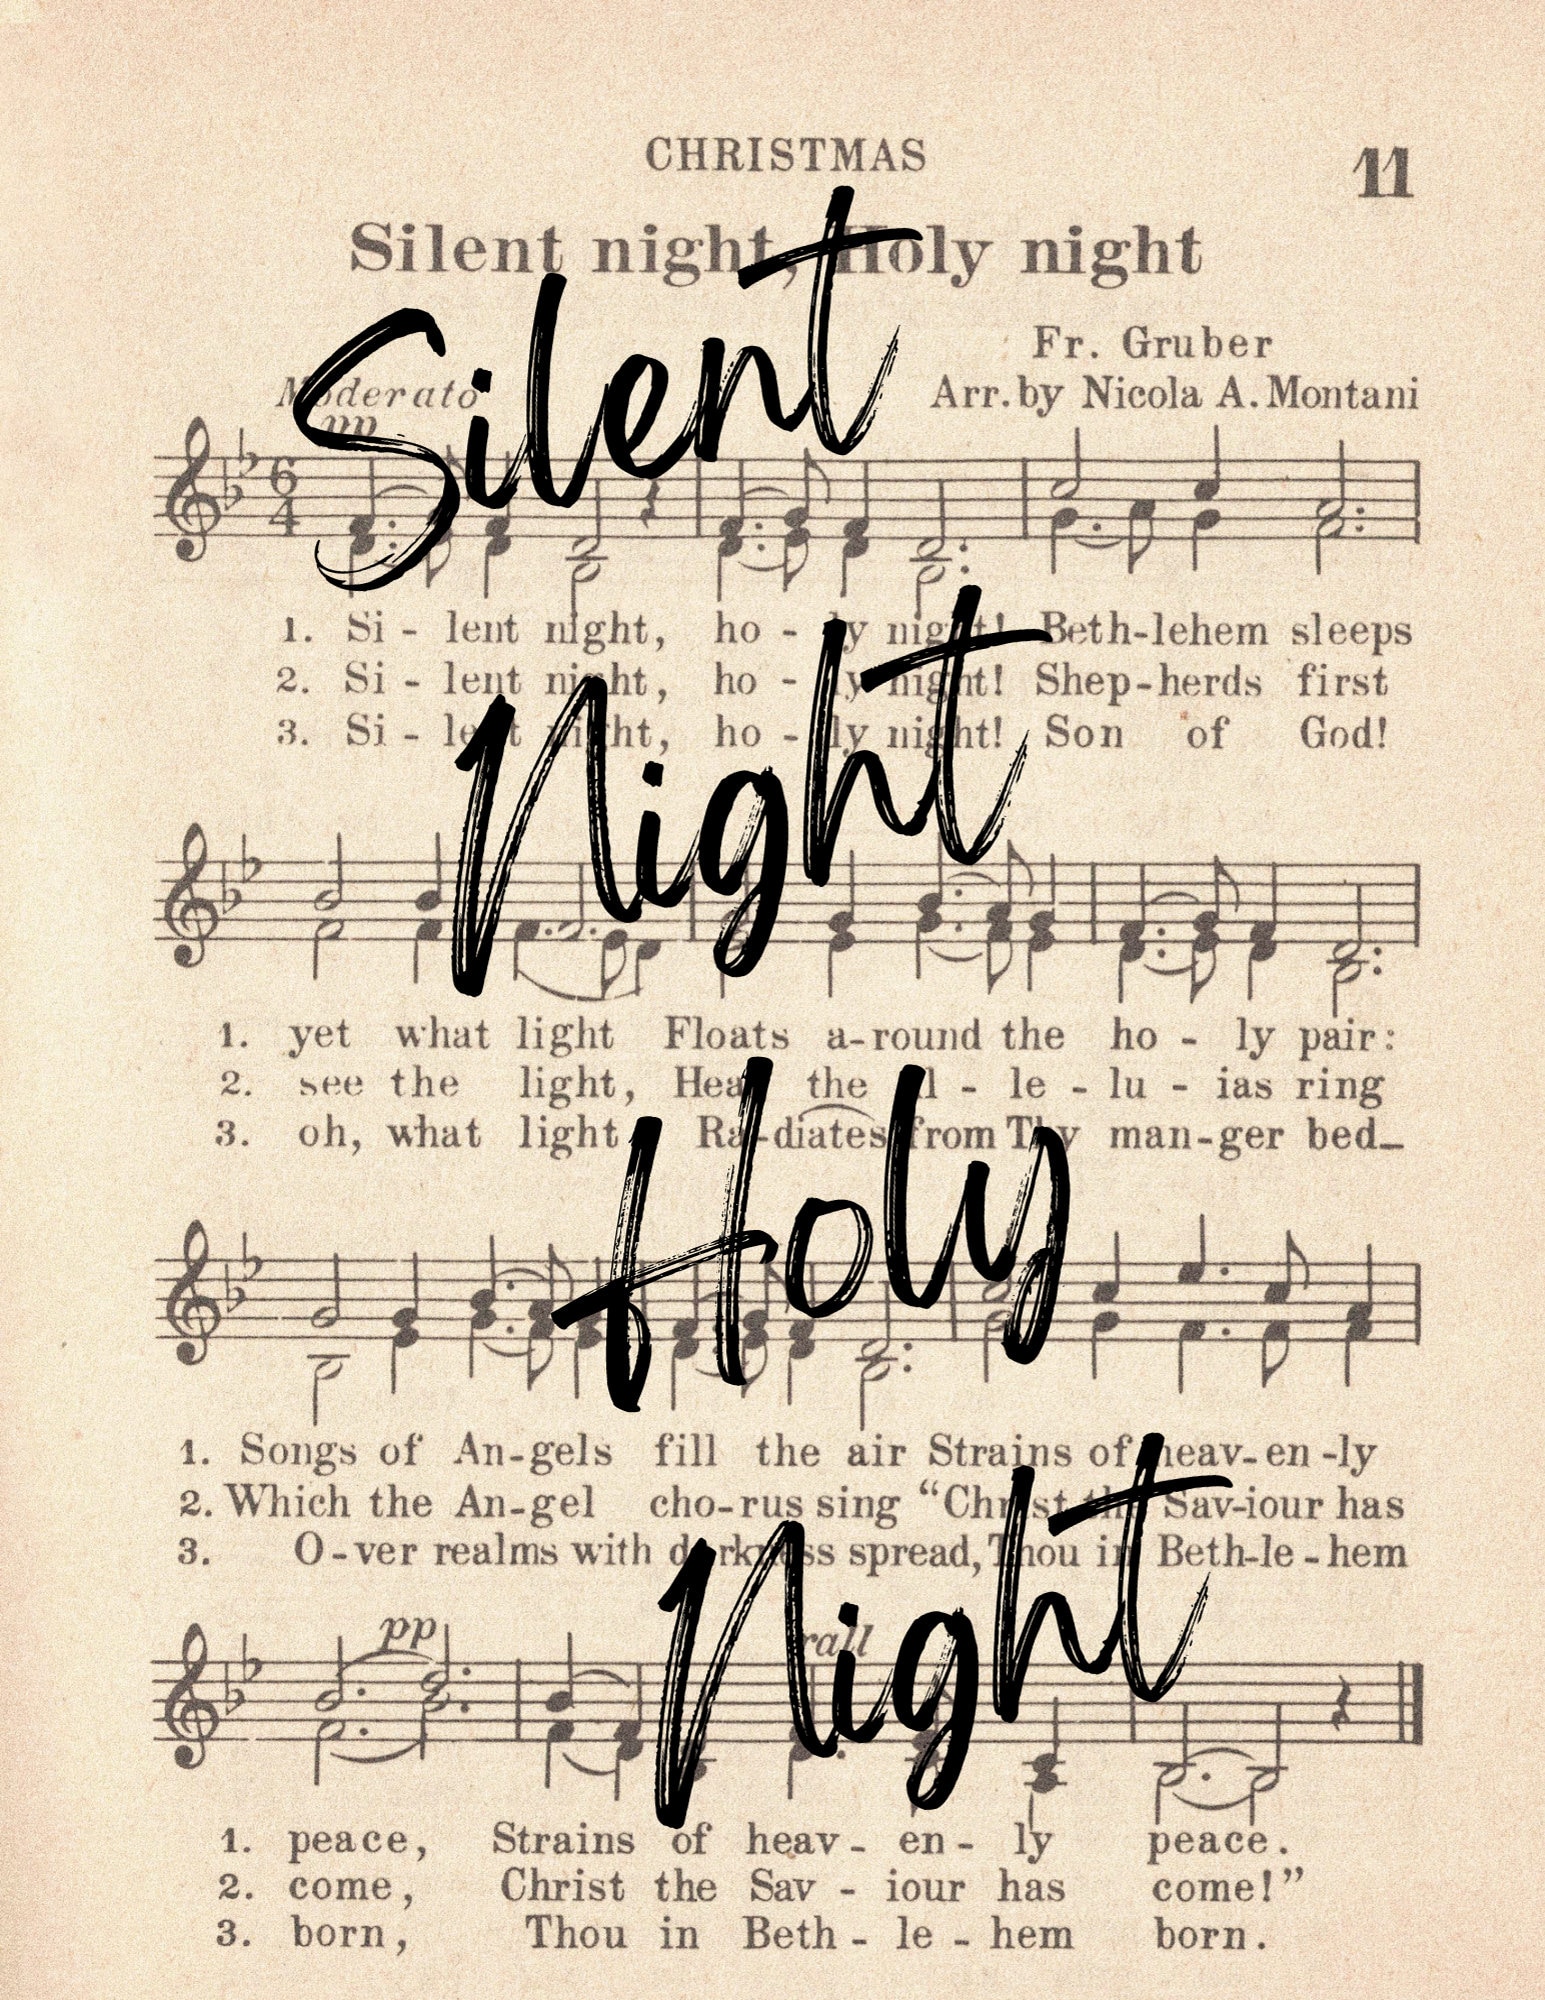 CHRISTMAS
11
Silent night, Holy night
Fr. Gruber
Arr. by Nicola A. Montani
Moderato
pp
Silent
6
4
1. Si - lent night, ho - ly night! Beth-lehem sleeps
2. Si - lent night, ho - ly night! Shep-herds first
3. Si - lent night, ho - ly night! Son of God!
Night
1. yet what light Floats a-round the ho - ly pair:
2. see the light, Hear the al - le - lu - ias ring
3. oh, what light Ra-diates from Thy man-ger bed_
Holy
1. Songs of An-gels fill the air Strains of heav-en-ly
2. Which the An-gel cho-rus sing “Christ the Sav-iour has
3. O-ver realms with darkness spread, Thou in Beth-le-hem
Night
pp
rall
1. peace, Strains of heav- en- ly peace.
2. come, Christ the Sav - iour has come!”
3. born, Thou in Beth - le - hem born.